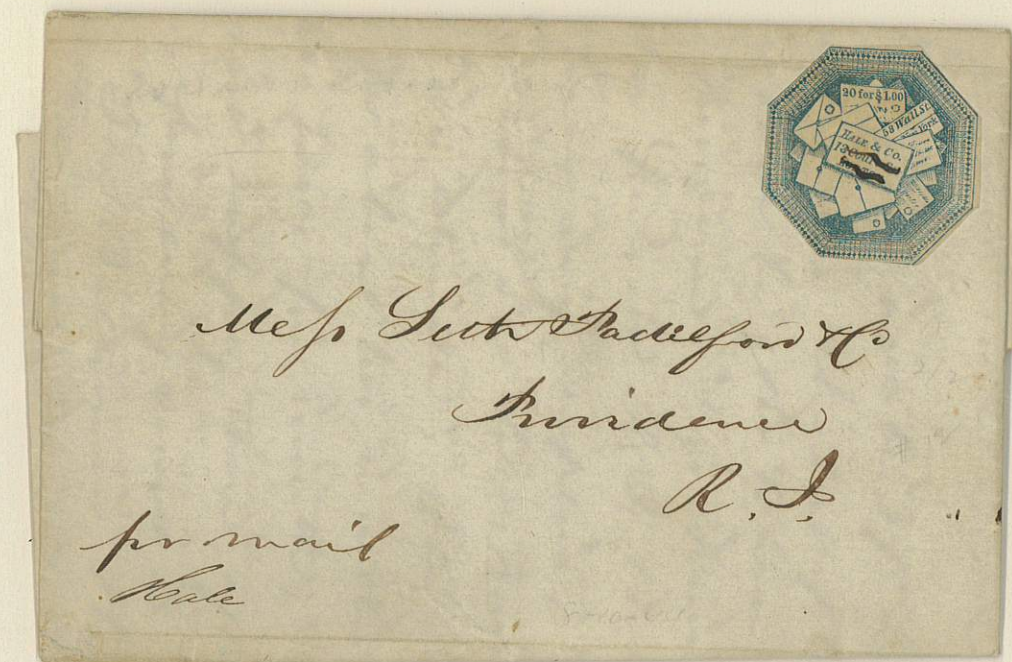 20 for $1.00
58 Wall St.
York
HALE & CO.
13 Court
Mess Seth Padelford & Co
Providence
R. I.
pr mail
Hale